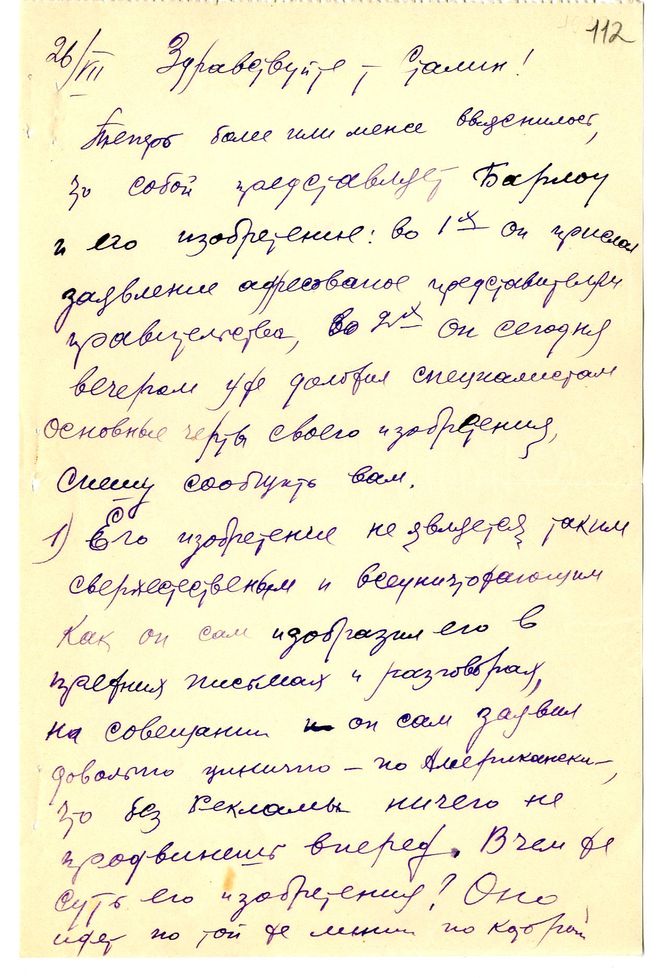 112
26/VII Здравствуйте т Сталин!
Теперь более или менее выяснилось,
что собой представляет Барлоу
и его изобретение: во 1х он прислал
заявление адресованое представителям
правительства, во 2х он сегодня
вечером уже доложил специалистам
основные черты своего изобретения,
спешу сообщить вам.
1) Его изобретение не является таким
сверхестественым и всеуничтожающим
как он сам изобразил его в
прежних письмах и разговорах,
на совещании он сам заявил
довольно цинично – по Американски –,
что без рекламы ничего не
продвинешь вперед. В чем же
суть его изобретения? Оно
идет по той же линии по которой